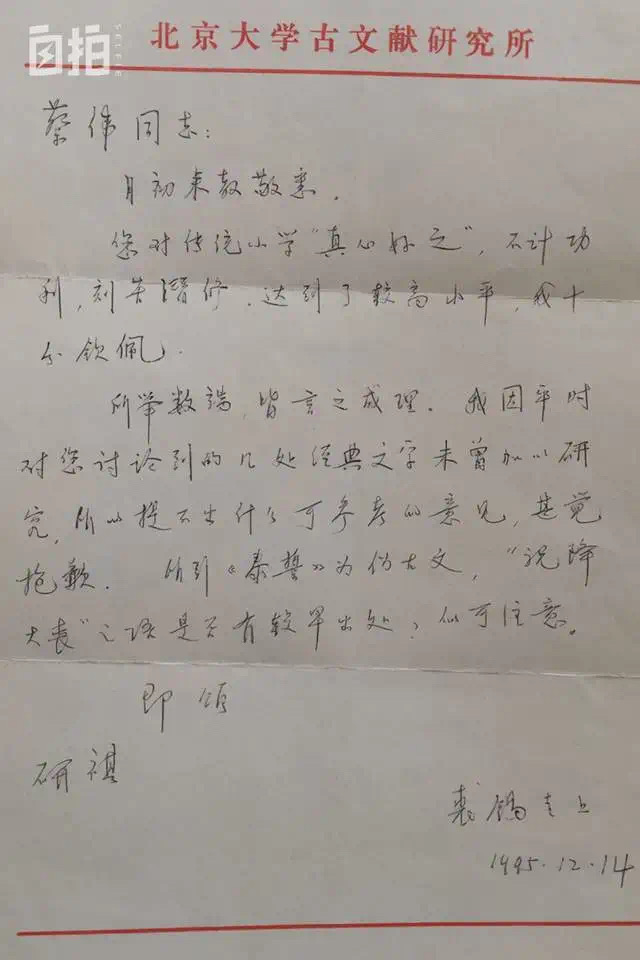 自拍
SELFIE
北京大学古文献研究所
蔡伟同志：
月初来教敬悉．
您对传统小学“真心好之”，不计功
利，刻苦潜修，达到了较高水平，我十
分钦佩．
所举数端，皆言之成理．我因平时
对您讨论到的几处经典文字未曾加以研
究，所以提不出什么可参考的意见，甚觉
抱歉．所引《泰誓》为伪古文，“祝降
大丧”之语是否有较早出处，似可注意。
即颂
研祺
裘锡圭上
1995.12.14